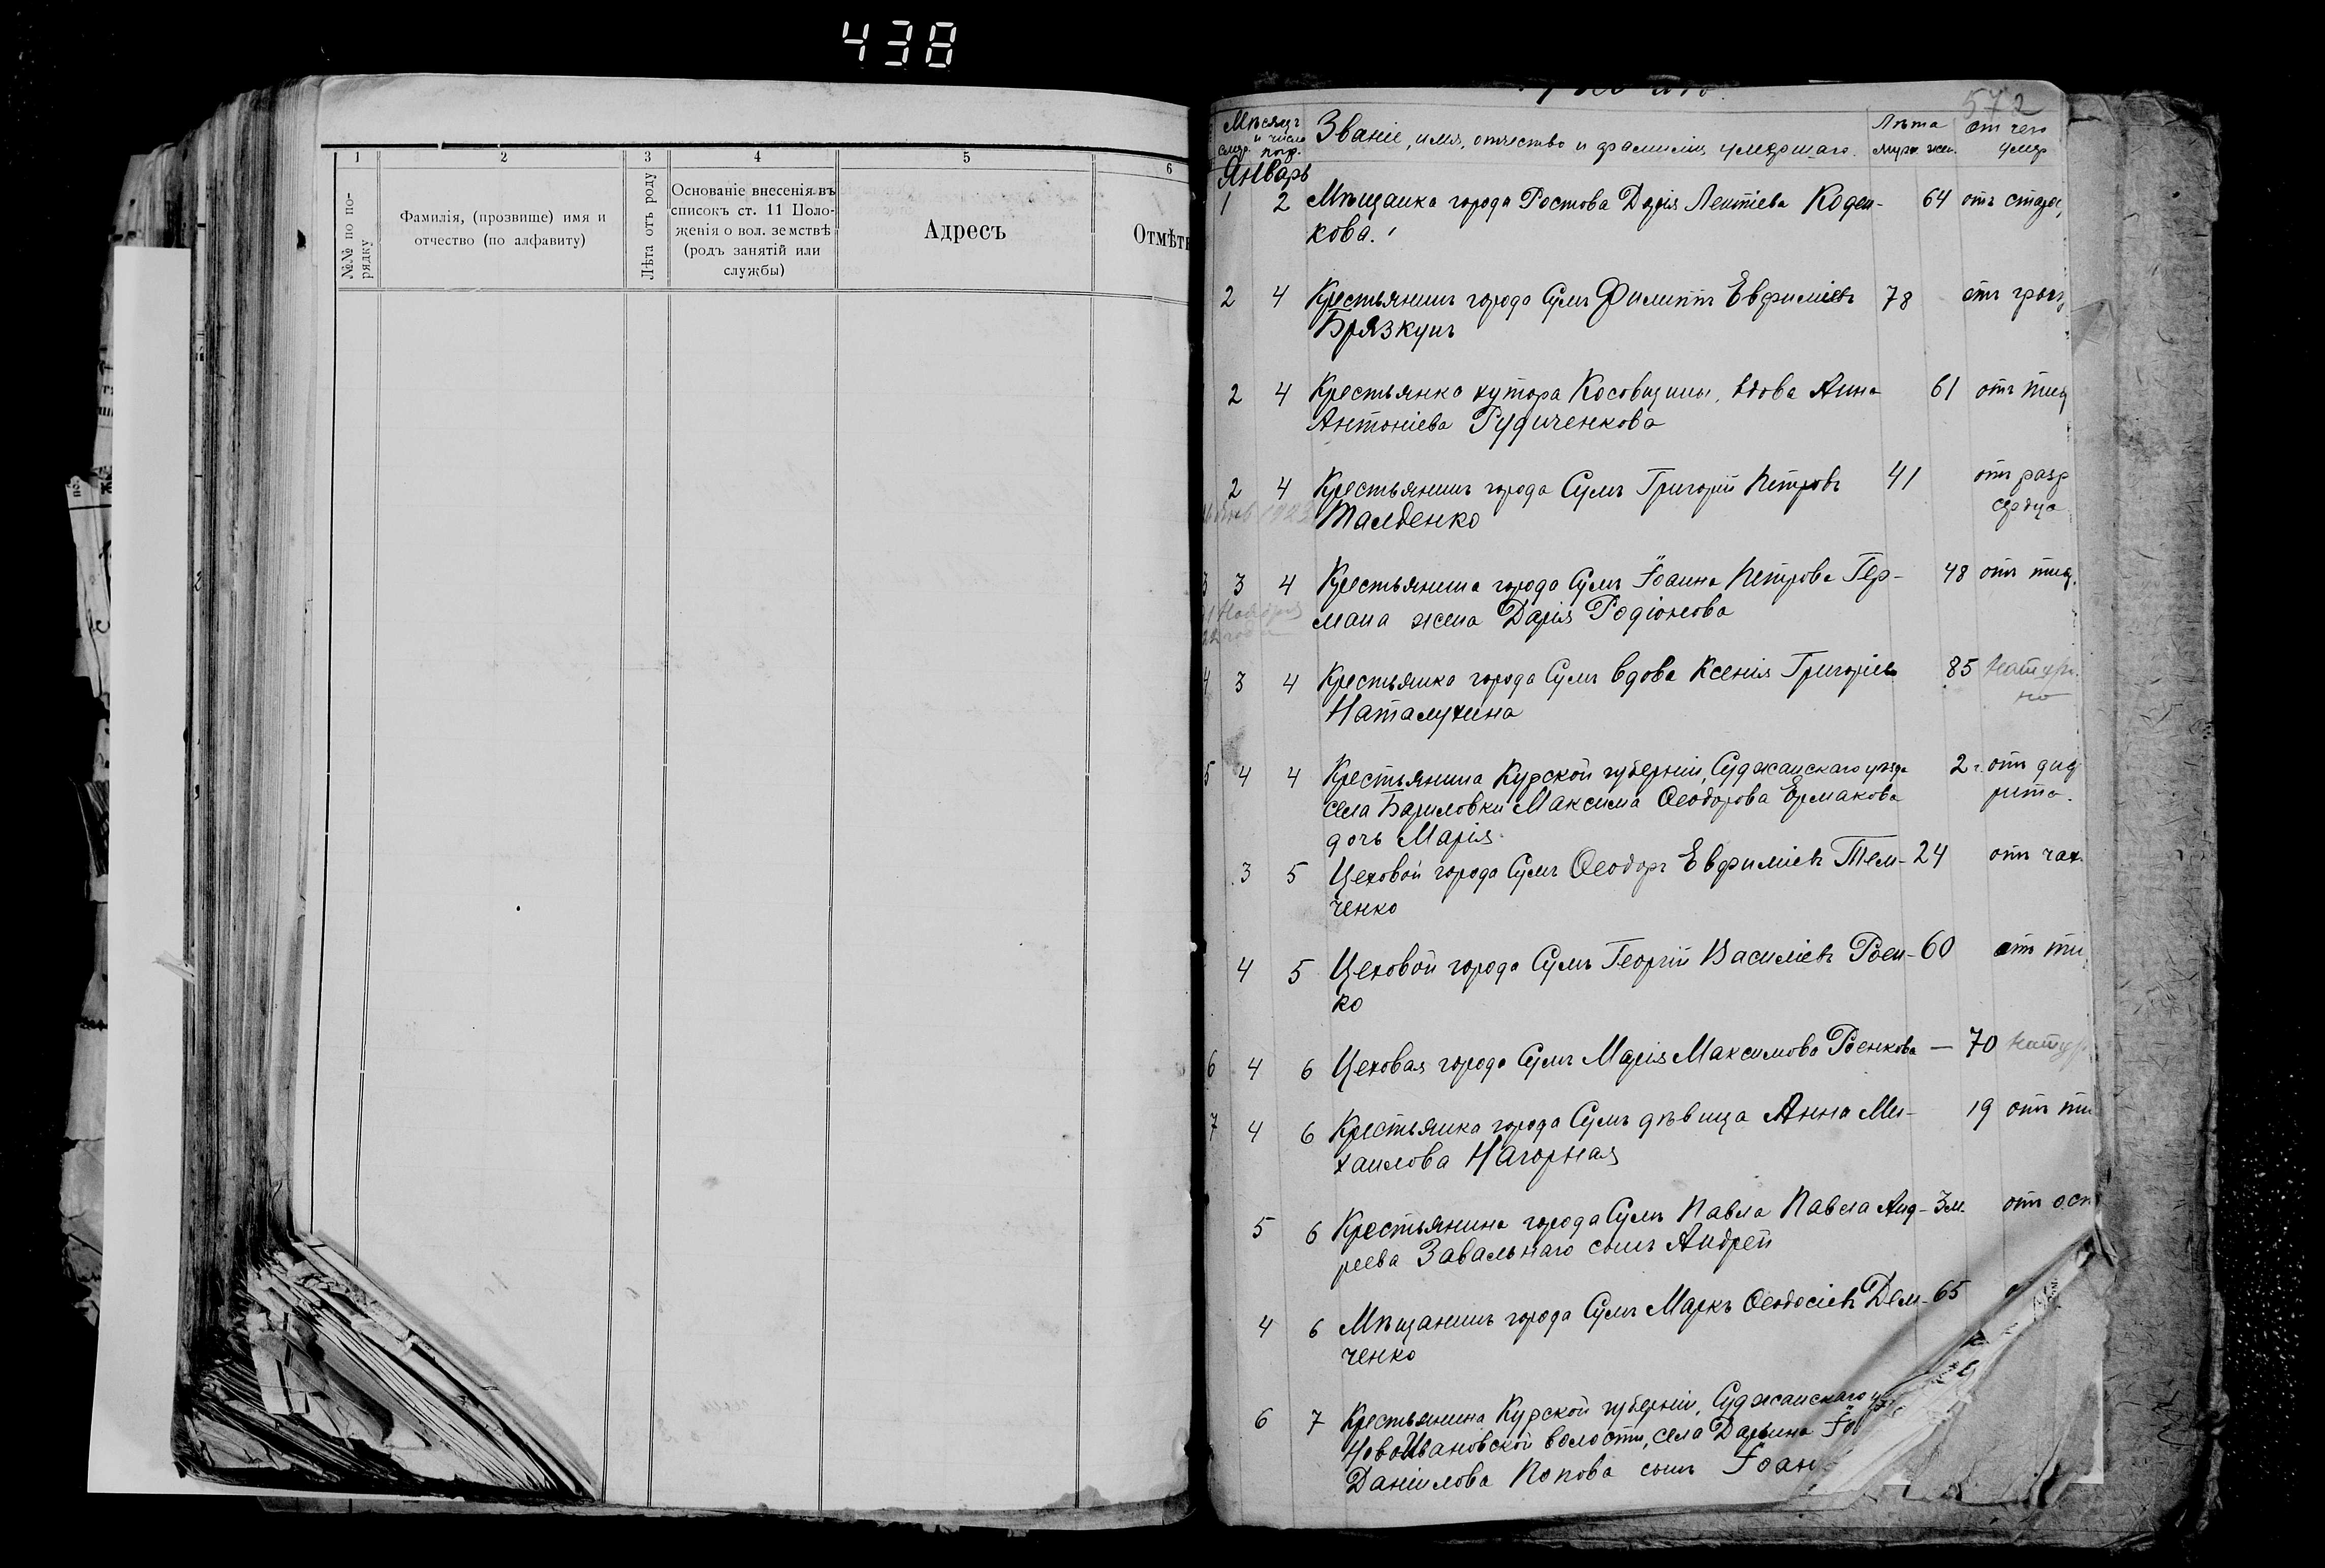 438
1 2 3 4 5 6
№№ по порядку
Фамилія, (прозвище) имя и
отчество (по алфавиту)
Лѣта отъ роду
Основаніе внесенія въ
списокъ ст. 11 Поло-
женія о вол. земствѣ
(родъ занятій или
службы)
Адресъ
Отмѣт
572
Мѣсяцъ и число
смер. погр.
Званіе, имя, отчество и фамилія умершаго.
Лѣта
муж. жен.
отъ чего
умер
Январь
1 2 Мѣщанка города Ростова Дарія Леонтіева Коден- 64 отъ старос
кова.
2 4 Крестьянинъ города Сумъ Филиппъ Евфиміевъ 78 отъ
Брязкунъ
2 4 Крестьянка хутора Косовщины, вдова Анна 61 отъ
Антоніева Рудиченкова
2 4 Крестьянинъ города Сумъ Григорій Петровъ 41 отъ разр
1923 Талденко сердца
3 3 4 Крестьянина города Сумъ Іоанна Петрова Гер- 48 отъ
мана жена Дарія Родіонова
4 3 4 Крестьянка города Сумъ вдова Ксенія Григоріев 85 натур
Наталухина но
5 4 4 Крестьянина Курской губерніи, Суджанскаго уѣзда 2 г. отъ
села Бариловки Максима Ѳеодорова Ермакова
дочь Марія
3 5 Цеховой города Сумъ Ѳеодоръ Евфиміевъ Тем- 24 отъ чах
ченко
4 5 Цеховой города Сумъ Георгій Василіевъ Роен- 60 отъ ти
ко
6 4 6 Цеховая города Сумъ Марія Максимова Роенкова — 70 натур
7 4 6 Крестьянка города Сумъ дѣвица Анна Ми- 19 отъ ти
хаилова Нагорная
5 6 Крестьянина города Сумъ Павла Павла Анд- 3 м. отъ осп
реева Завальнаго сынъ Андрей
4 6 Мѣщанинъ города Сумъ Маркъ Ѳеодосіевъ Дем- 65
ченко
6 7 Крестьянина Курской губерніи, Суджанскаго у
НовоИвановской волости, села Дарьина Іо
Даніилова Попова сынъ Іоан